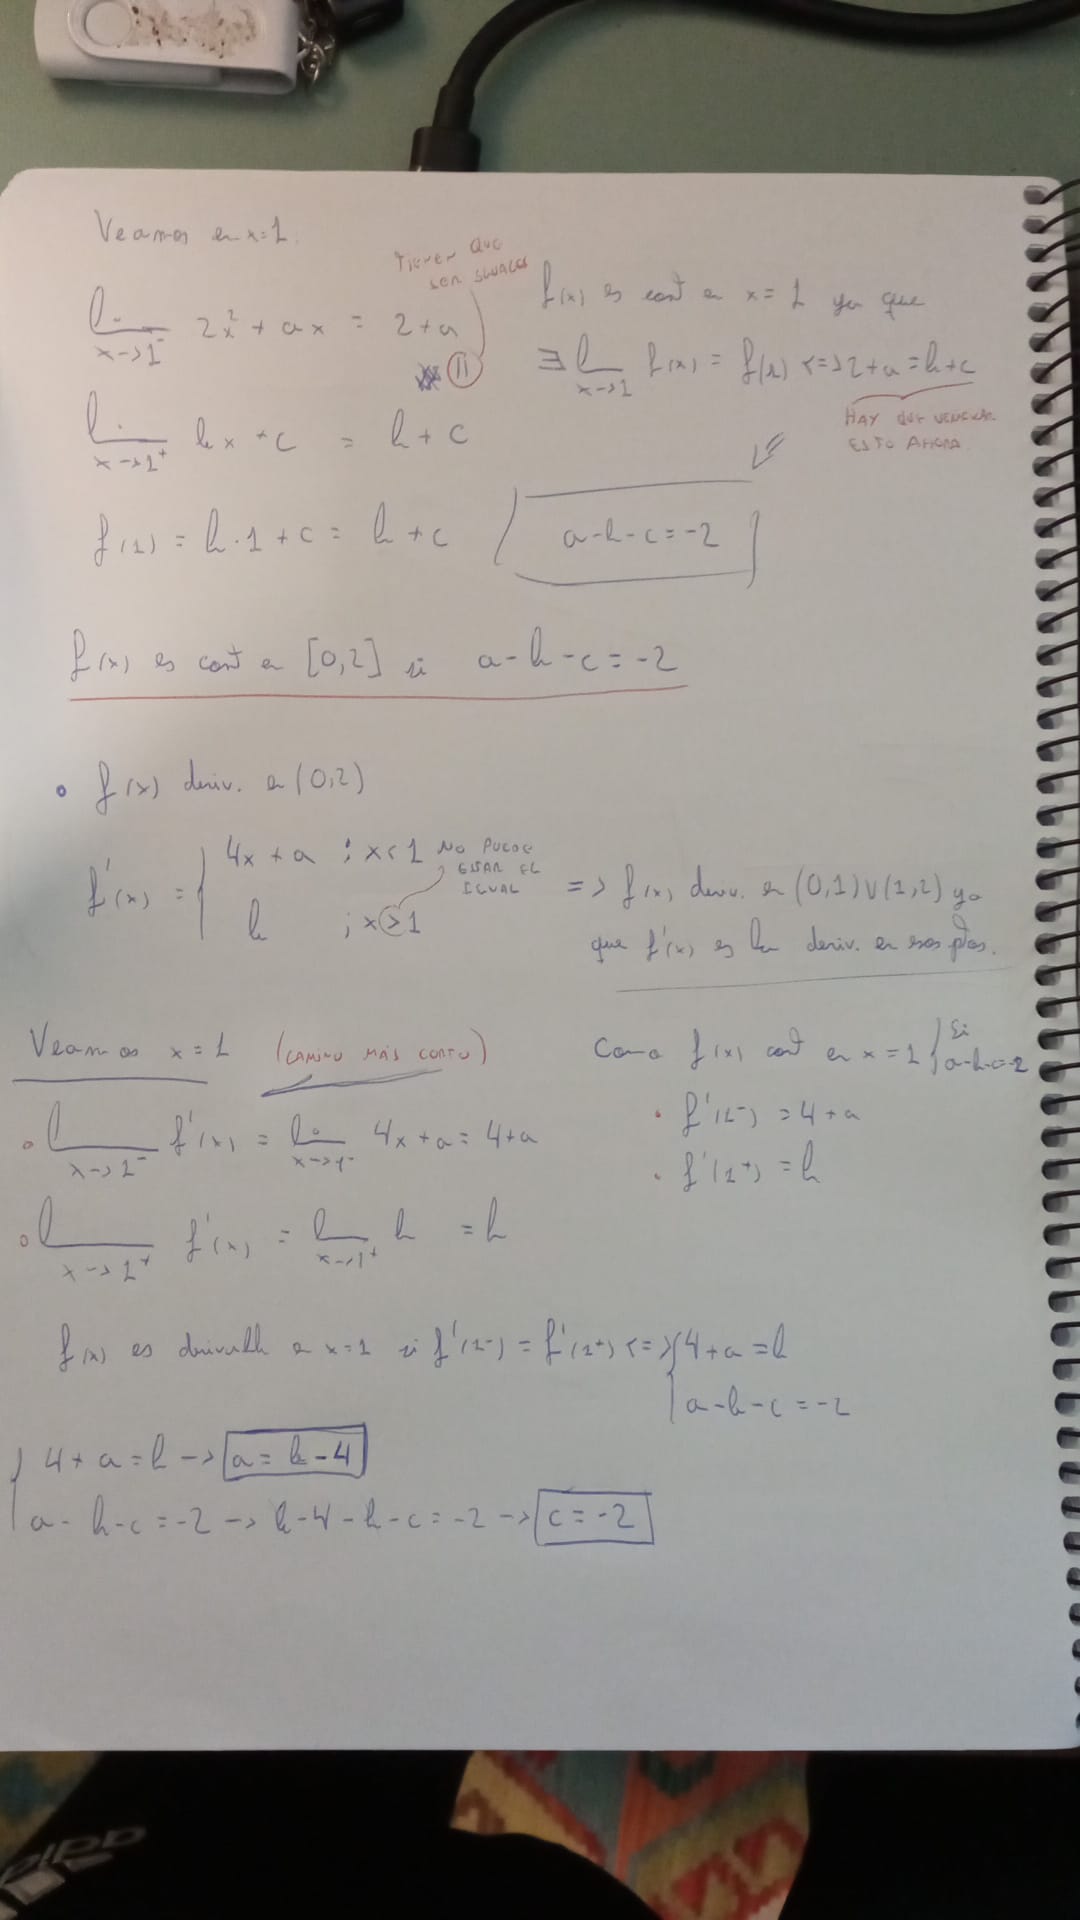 Veamos en x=1.
TIENEN QUE
SER IGUALES
lim x->1⁻ 2x² + ax = 2+a
(11)
f(x) es cont en x = 1 ya que
∃ lim x->1 f(x) = f(1) <=> 2+a = b+c
HAY QUE
ESTO AHORA
lim x->1⁺ bx + c = b + c
f(1) = b·1 + c = b + c
a-b-c=-2
f(x) es cont en [0,2] si a-b-c=-2
• f(x) deriv. en (0,2)
f'(x) = { 4x + a ; x<1
b ; x>1
NO PUEDE
ESTAR EL
IGUAL
=> f(x) deriv. en (0,1)∪(1,2) ya
que f'(x) es la deriv. en esos ptos.
Veamos x=1 (CAMINO MÁS CORTO)
• lim x->1⁻ f'(x) = lim x->1⁻ 4x+a = 4+a
• lim x->1⁺ f'(x) = lim x->1⁺ b = b
Como f(x) cont en x=1 } Si a-b-c=-2
• f'(1⁻) = 4+a
• f'(1⁺) = b
f(x) es derivable en x=1 si f'(1⁻) = f'(1⁺) <=> { 4+a = b
a-b-c=-2
{ 4+a=b -> a=b-4
a-b-c=-2 -> b-4-b-c=-2 -> c=-2
adidas